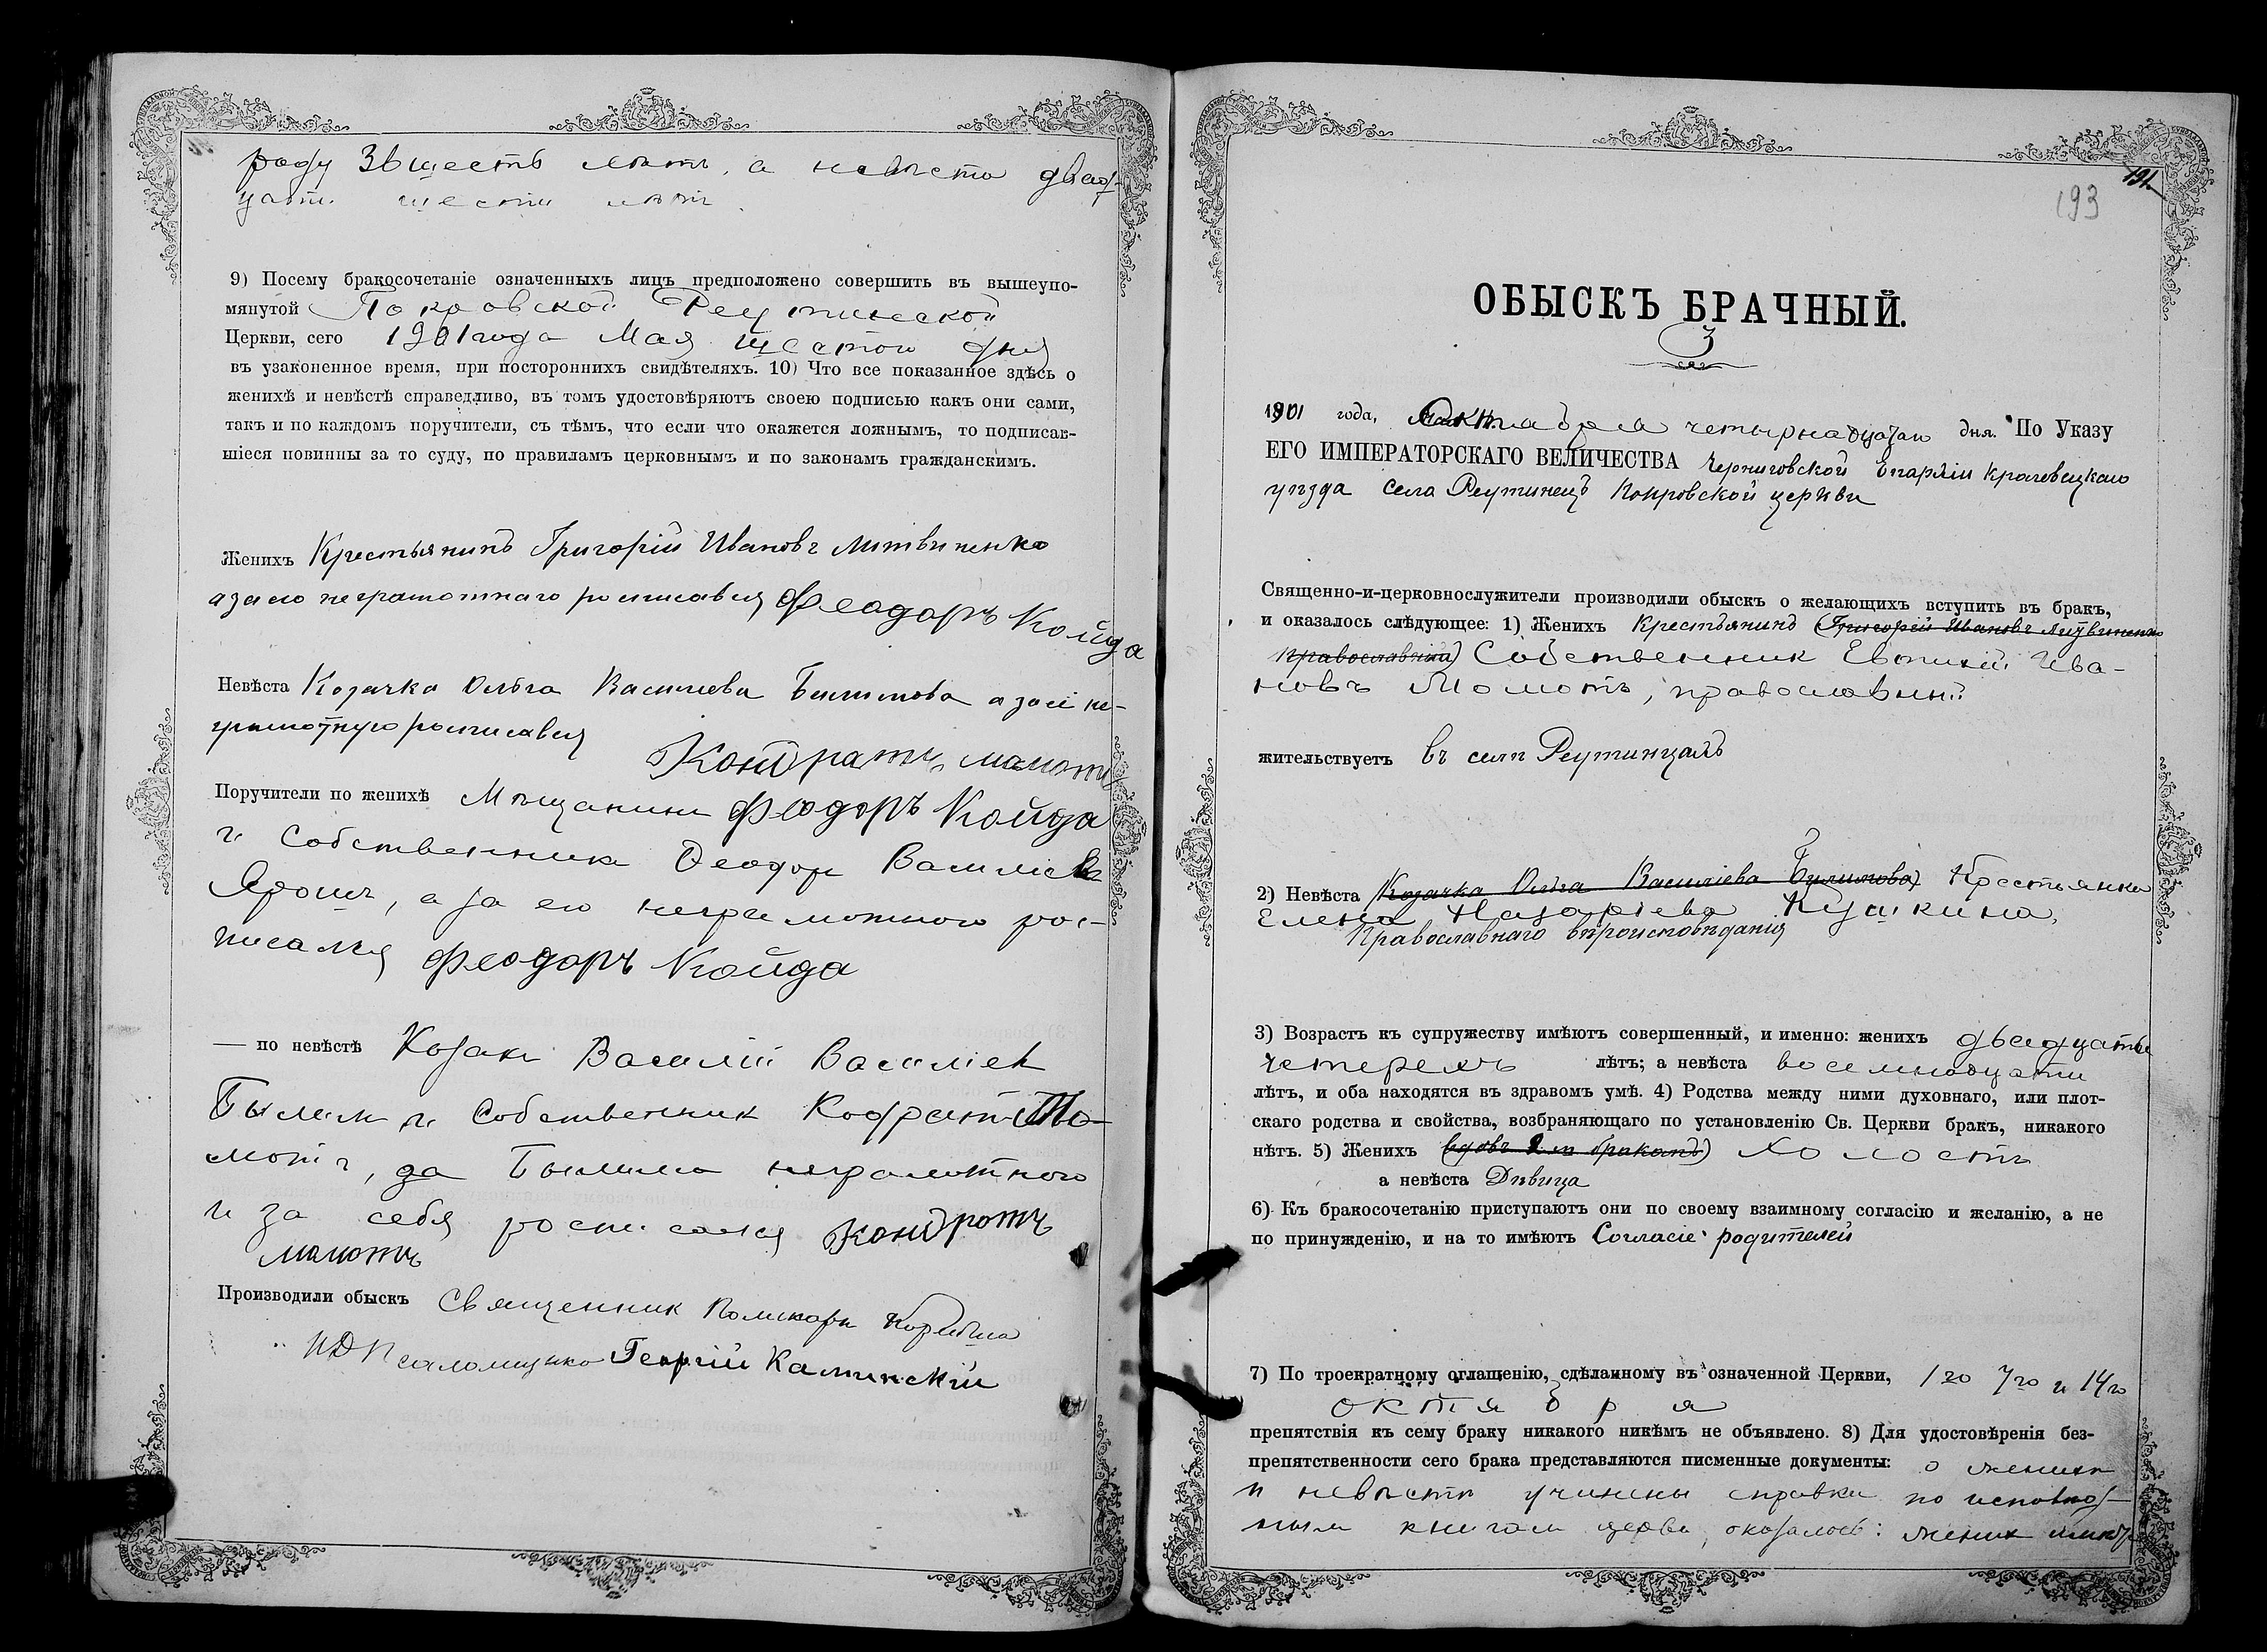 роду 36 шесть лѣтъ, а невѣста двад-
цати шести лѣтъ.
9) Посему бракосочетаніе означенныхъ лицъ предположено совершить въ вышеупо-
мянутой Покровской Реутинской
Церкви, сего 1901 года Мая шестого дня
въ узаконенное время, при постороннихъ свидѣтеляхъ. 10) Что все показанное здѣсь о
женихѣ и невѣстѣ справедливо, въ томъ удостовѣряютъ своею подписью какъ они сами,
такъ и по каждомъ поручители, съ тѣмъ, что если что окажется ложнымъ, то подписав-
шіеся повинны за то суду, по правиламъ церковнымъ и по законамъ гражданскимъ.
Женихъ Крестьянинъ Григорій Ивановъ Литвиненко
а за его неграмотнаго росписався Феодоръ Койда
Невѣста Козачка Ольга Василіева Билимова а за ее не-
грамотную росписався
Кондратъ Мамотъ
Поручители по женихѣ Мѣщанинъ Феодоръ Койда
и Собственникъ Феодоръ Василіевъ
Ярошъ, а за его неграмотного рос-
писался Феодоръ Койда
— по невѣстѣ Козакъ Василій Василіевъ
Былим и Собственник Кодратъ Мо-
мотъ, за Былима неграмотного
и за себя росписался Кондротъ
Мамотъ
Производили обыскъ Священник Поликарп
И Д Псаломщика Георгій Каминскій
191
193
ОБЫСКЪ БРАЧНЫЙ.
3
1901 года, Октября четырнадцатаго дня. По Указу
ЕГО ИМПЕРАТОРСКАГО ВЕЛИЧЕСТВА Черниговской Епархіи Кролевецкаго
уѣзда села Реутинецъ Покровской церкви
Священно-и-церковнослужители производили обыскъ о желающихъ вступить въ бракъ,
и оказалось слѣдующее: 1) Женихъ Крестьянинъ (Григорій Ивановъ Литвиненко
православный) Собственник Евтихій Ива-
новъ Момотъ, православный
жительствуетъ въ селѣ Реутинцахъ
2) Невѣста (Козачка Ольга Василіева Билимова) Крестьянка
Елена Назаріева Кушкина,
Православнаго вѣроисповѣданія
3) Возрастъ къ супружеству имѣютъ совершенный, и именно: женихъ двадцать
четерехъ лѣтъ; а невѣста восемнадцати
лѣтъ, и оба находятся въ здравомъ умѣ. 4) Родства между ними духовнаго, или плот-
скаго родства и свойства, возбраняющаго по установленію Св. Церкви бракъ, никакого
нѣтъ. 5) Женихъ (вдовъ 2 м бракомъ) Холостъ
а невѣста Дѣвица
6) Къ бракосочетанію приступаютъ они по своему взаимному согласію и желанію, а не
по принужденію, и на то имѣютъ Согласіе родителей
7) По троекратному оглашенію, сдѣланному въ означенной Церкви, 1го 7го и 14го
октября
препятствія къ сему браку никакого никѣмъ не объявлено. 8) Для удостовѣренія без-
препятственности сего брака представляются писменные документы: о женихѣ
и невѣстѣ учинены справки по исповѣд-
ным книгам церкви, оказалось: жених имѣе